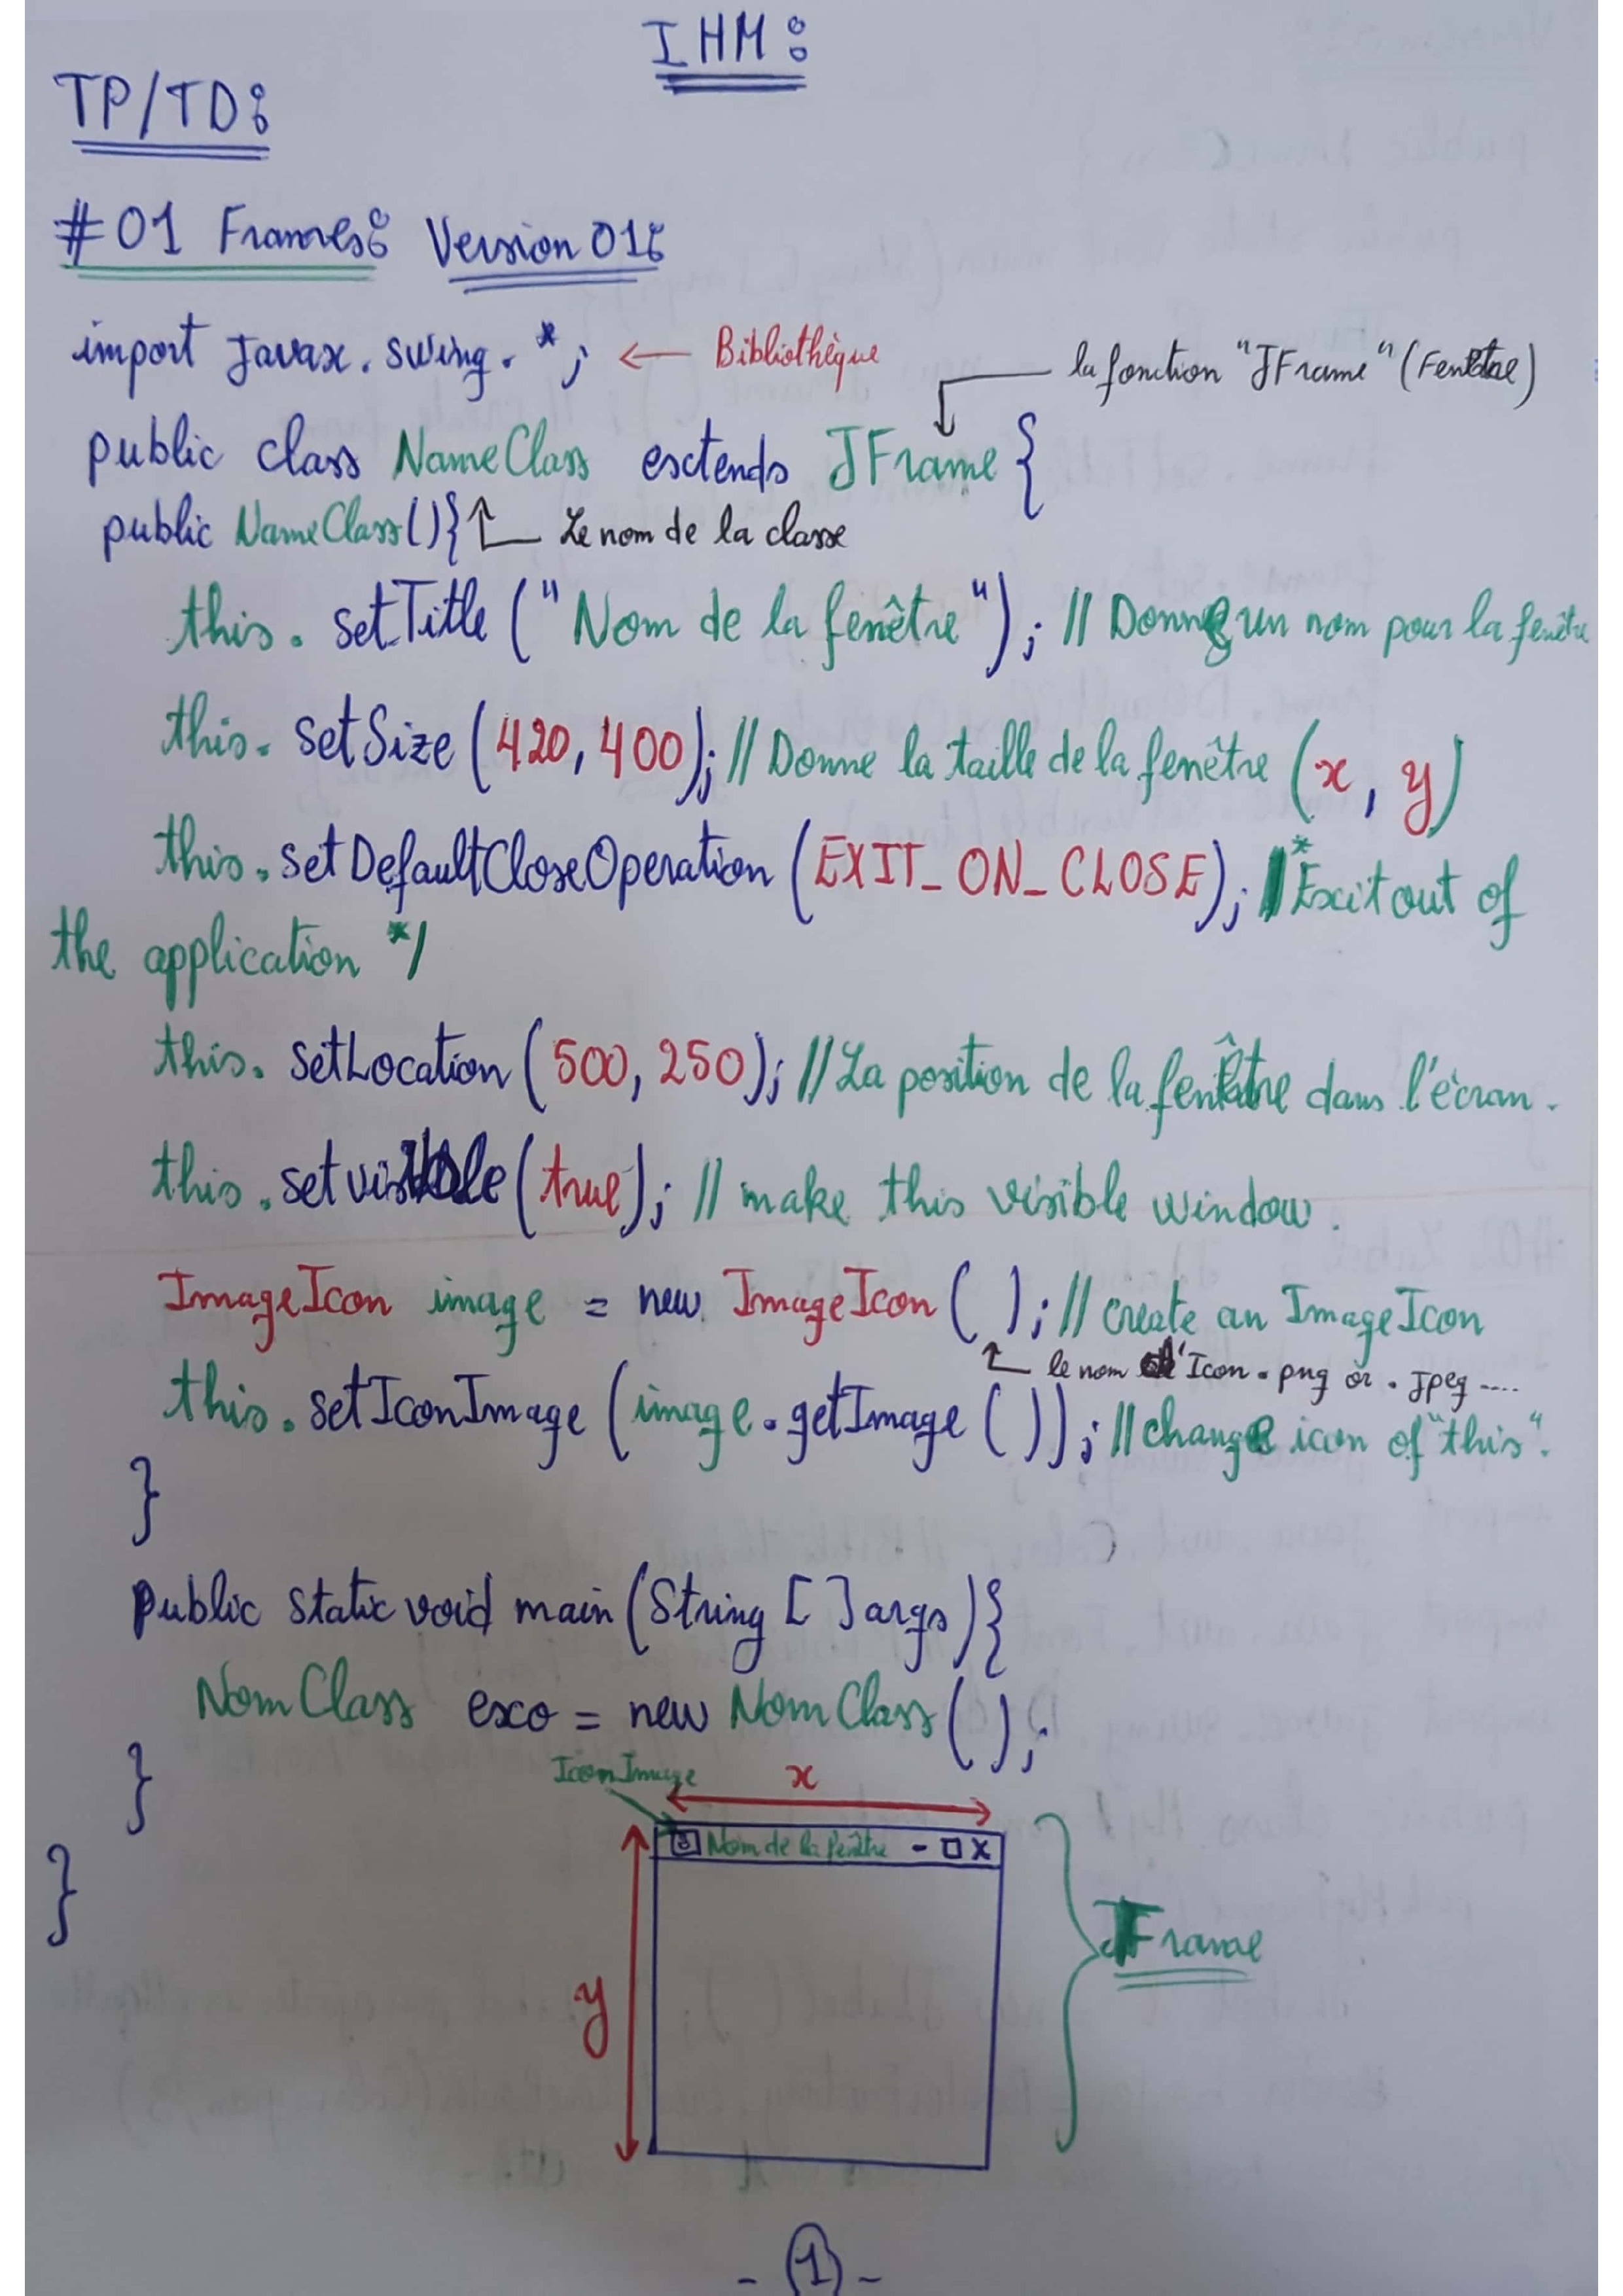 IHM:
TP/TD:
#01 Frames: Version 01:
import Javax.swing.*; ← Bibliothèque
la fonction "JFrame" (Fenêtre)
public class NameClass extends JFrame {
public NameClass(){ Le nom de la classe
this.setTitle("Nom de la fenêtre"); // Donne un nom pour la fenêtre
this.setSize(420,400); // Donne la taille de la fenêtre (x, y)
this.setDefaultCloseOperation(EXIT_ON_CLOSE); /* Exit out of
the application */
this.setLocation(500,250); // La position de la fenêtre dans l'écran.
this.setvisible(true); // make this visible window.
ImageIcon image = new ImageIcon( ); // create an ImageIcon
le nom d'Icon.png or .jpeg ....
this.setIconImage(image.getImage()); // change icon of "this".
}
public static void main(String []args){
NomClass exo = new NomClass();
}
IconImage x
Nom de la fenêtre - □ X
}
JFrame
y
- 1 -